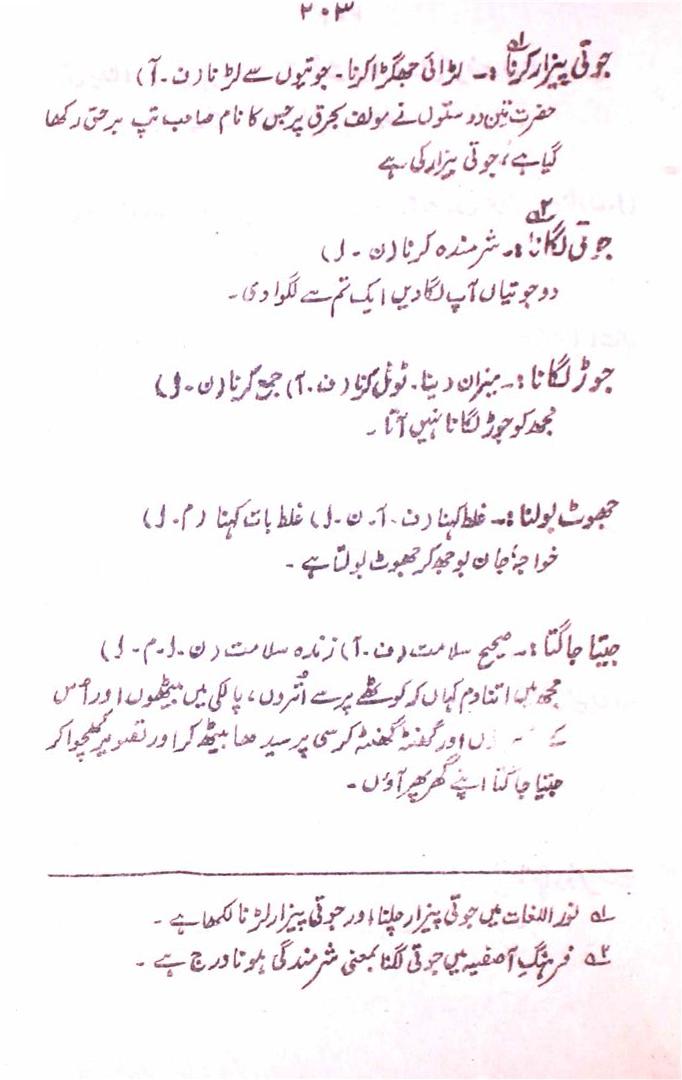 ۲۰۳
جوتی پیزار کرنا؎۱:۔ لڑائی جھگڑا کرنا۔ جوتیوں سے لڑنا (ف۔آ)
حضرت تین دوستوں نے مولف محرق پر جس کا نام صاحب تپ محرق رکھا
گیا ہے، جوتی پیزار کی ہے
جوتی لگانا؎۲:۔ شرمندہ کرنا (ن ۔ ل)
دو جوتیاں آپ لگادیں ایک تم سے لگوا دی۔
جوڑ لگانا:۔ میزان دینا۔ ٹوٹل کرنا (ف۔آ) جمع کرنا (ن۔ل)
مجھ کو جوڑ لگانا نہیں آتا۔
جھوٹ بولنا:۔ غلط کہنا (ف۔آ۔ن۔ل) غلط بات کہنا (م۔ل)
خواجہ جان بوجھ کر جھوٹ بولتا ہے۔
جیتا جاگتا:۔ صحیح سلامت (ف۔آ) زندہ سلامت (ن۔ل۔م۔ل)
مجھ میں اتنا دم کہاں کہ کوٹھے پر سے اُتروں، پالکی میں بیٹھوں اور اُس
کے اور گھنٹہ گھنٹہ کرسی پر سیدھا بیٹھ کر اور تصویر کھچوا کر
جیتا جاگتا اپنے گھر پھر آؤں۔
؎۱ نور اللغات میں جوتی پیزار چلنا، اور جوتی پیزار لڑنا لکھا ہے۔
؎۲ فرہنگِ آصفیہ میں جوتی لگنا بمعنی شرمندگی ہونا درج ہے۔